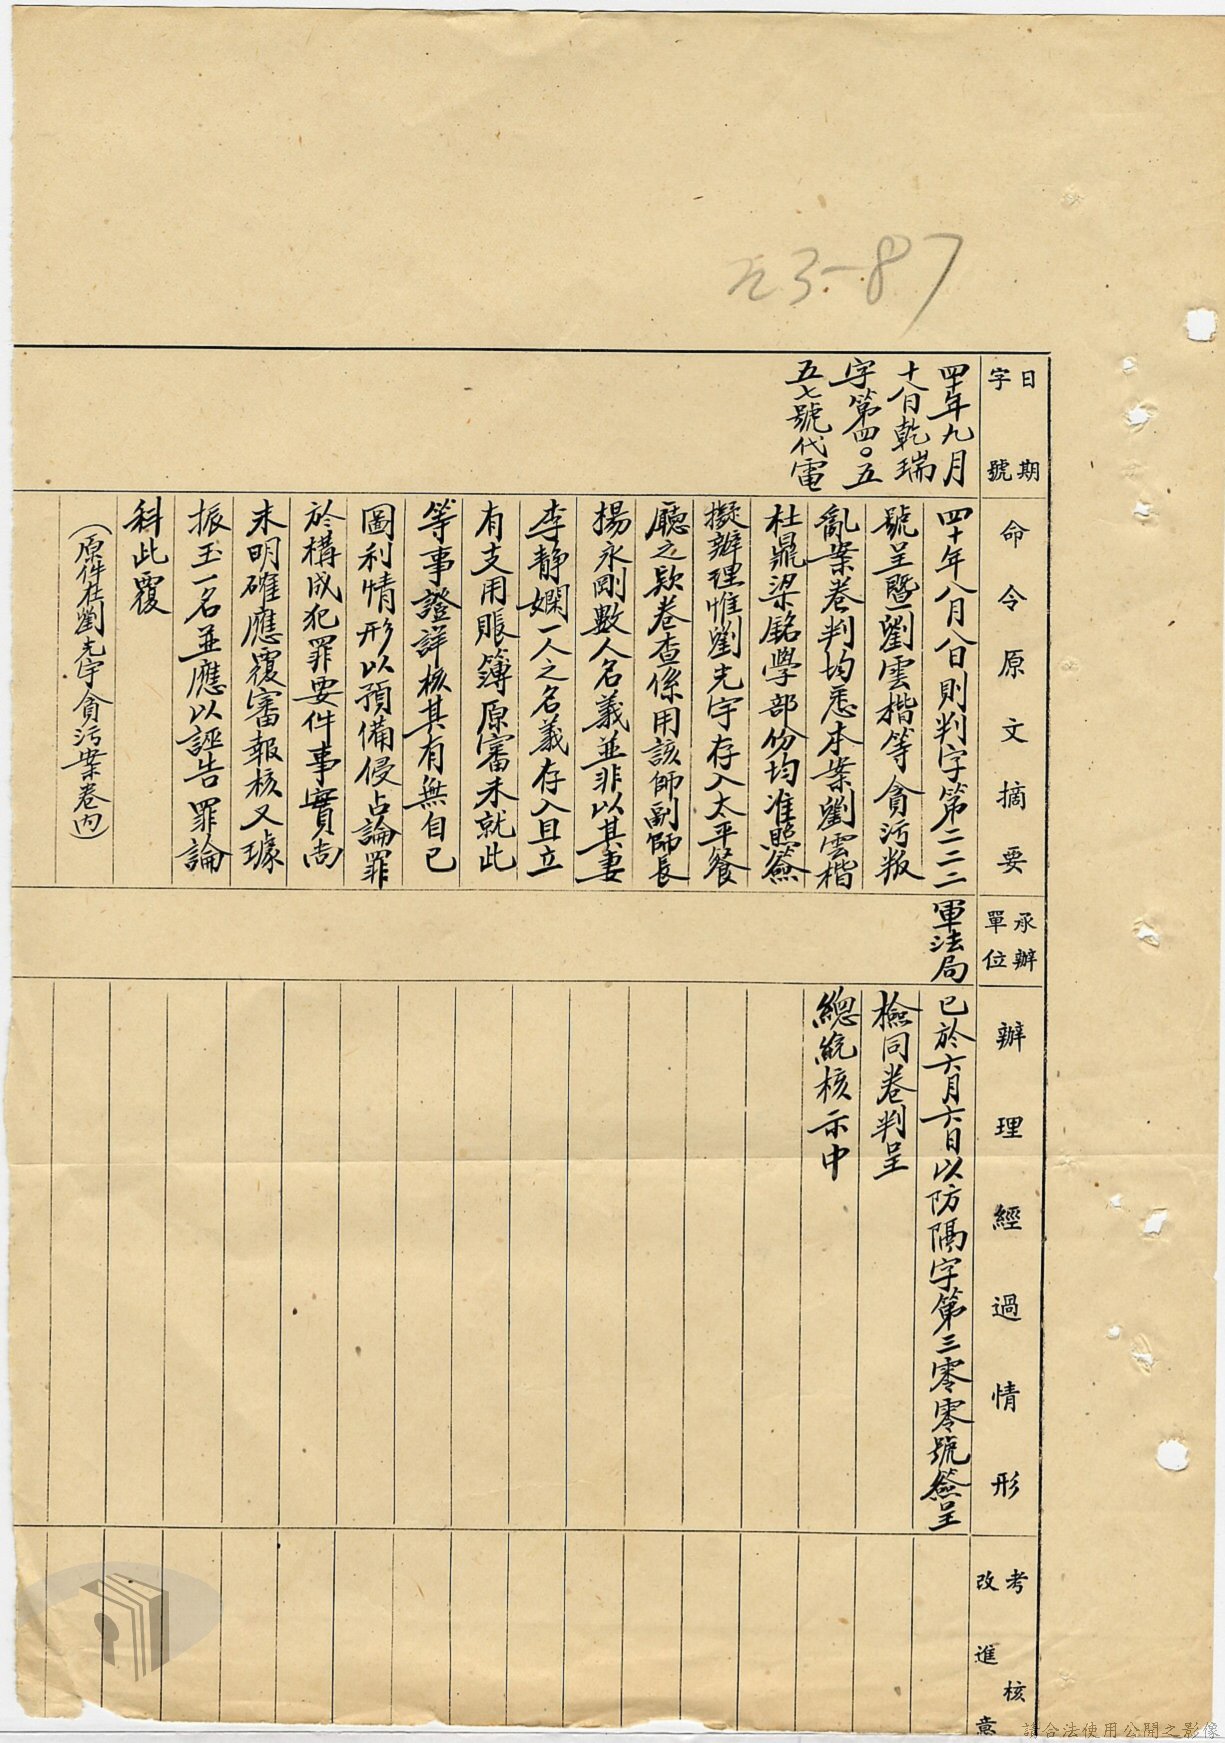 元3-87
日期
字號
命令原文摘要
承辦
單位
辦理經過情形
考核
改進意
四十年九月
十八日乾瑞
字第四〇五
五七號代電
四十年八月八日則判字第二二二
號呈暨劉雲楷等貪污叛
亂案卷判均悉本案劉雲楷
杜鼎梁銘學部份均准照簽
擬辦理惟劉光宇存入太平餐
廳之款卷查係用該師副師長
楊永剛數人名義並非以其妻
李靜嫻一人之名義存入且立
有支用賬簿原審未就此
等事證詳核其有無自己
圖利情形以預備侵占論罪
於構成犯罪要件事實尚
未明確應覆審報核又璩
振玉一名並應以誣告罪論
科此覆
(原件在劉光宇貪污案卷內)
軍法局
已於六月六日以防隔字第三零零號簽呈
檢同卷判呈
總統核示中
請合法使用公開之影像